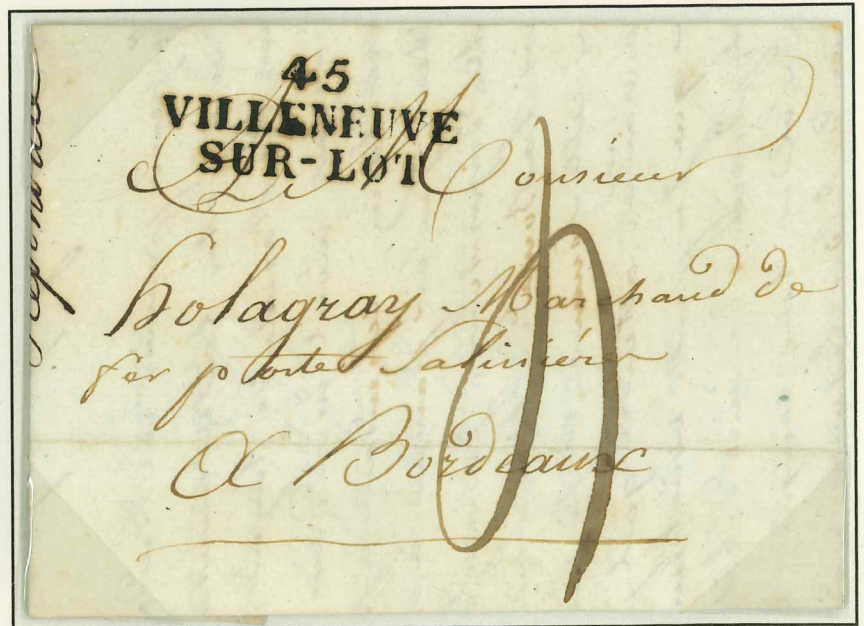 45
VILLENEUVE
SUR-LOT
A Monsieur
holagray Marchand de
fer porte Saliniére
A Bordeaux